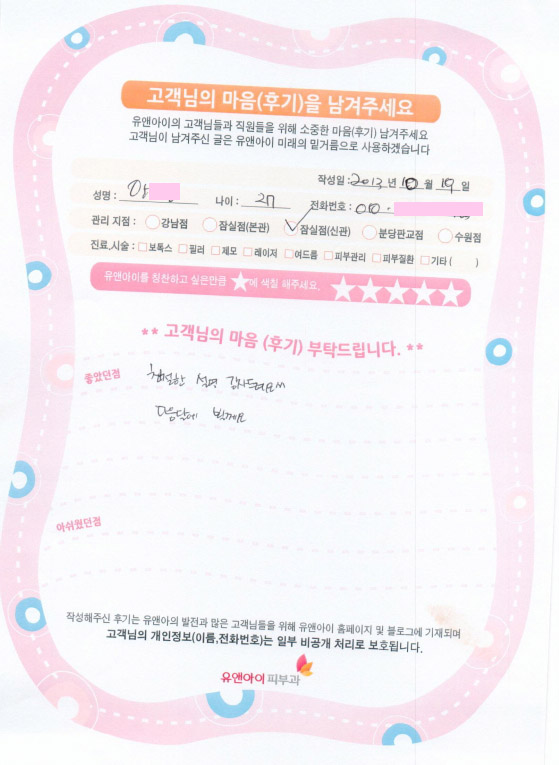 고객님의 마음(후기)을 남겨주세요
유앤아이의 고객님들과 직원들을 위해 소중한 마음(후기) 남겨주세요
고객님이 남겨주신 글은 유앤아이 미래의 밑거름으로 사용하겠습니다
작성일 : 2013 년 10 월 19 일
성명 : 나이 : 27 전화번호 : 010 -
관리 지점 : 강남점 잠실점(본관) 잠실점(신관) 분당판교점 수원점
진료,시술 : 보톡스 필러 제모 레이저 여드름 피부관리 피부질환 기타 ( )
유앤아이를 칭찬하고 싶은만큼 ★에 색칠 해주세요. ★★★★★
** 고객님의 마음 (후기) 부탁드립니다. **
좋았던점 친절한 설명 감사드려요^^
다음달에 뵐게요
아쉬웠던점
작성해주신 후기는 유앤아의 발전과 많은 고객님들을 위해 유앤아이 홈페이지 및 블로그에 기재되며
고객님의 개인정보(이름,전화번호)는 일부 비공개 처리로 보호됩니다.
유앤아이 피부과